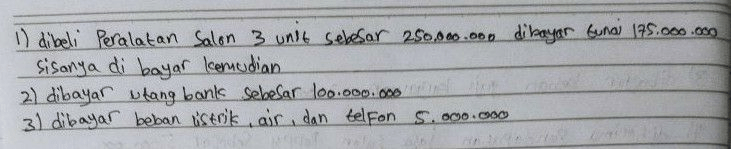 1) dibeli Peralatan Salon 3 unit sebesar 250.000.000 dibayar tunai 175.000.000
sisanya di bayar kemudian
2) dibayar utang bank sebesar 100.000.000
3) dibayar beban listrik, air, dan telfon 5.000.000